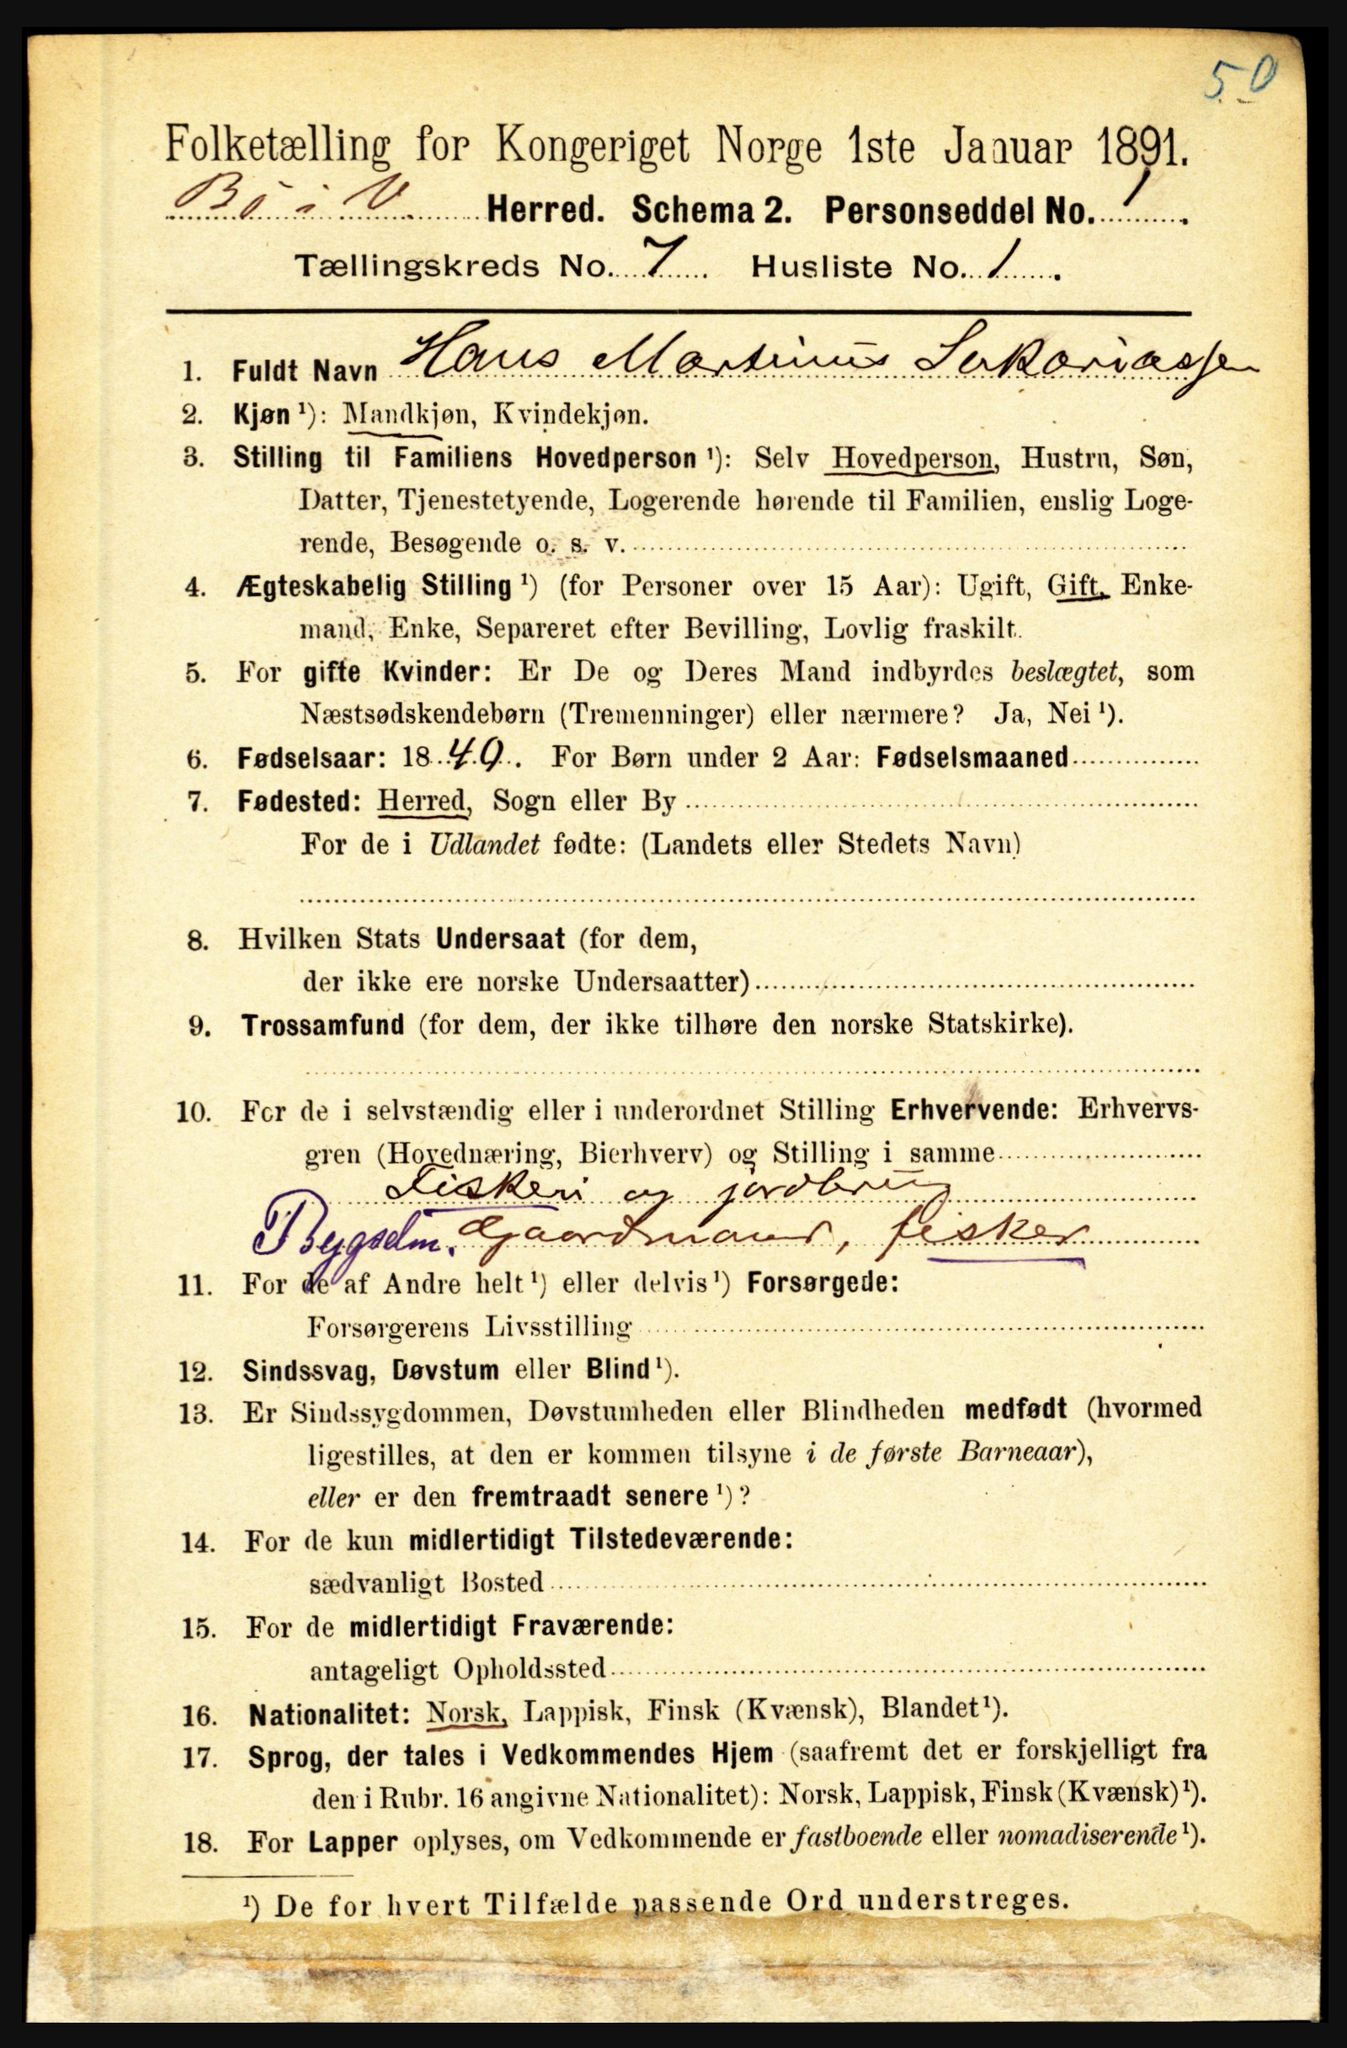 50
Folketælling for Kongeriget Norge 1ste Januar 1891.
Bö i V. Herred. Schema 2. Personseddel No. 1.
Tællingskreds No. 7. Husliste No. 1.
1. Fuldt Navn Hans Martinus Sakariassen
2. Kjøn ¹): Mandkjøn, Kvindekjøn.
3. Stilling til Familiens Hovedperson ¹): Selv Hovedperson, Hustru, Søn,
Datter, Tjenestetyende, Logerende hørende til Familien, enslig Loge-
rende, Besøgende o. s. v.
4. Ægteskabelig Stilling ¹) (for Personer over 15 Aar): Ugift, Gift, Enke-
mand, Enke, Separeret efter Bevilling, Lovlig fraskilt.
5. For gifte Kvinder: Er De og Deres Mand indbyrdes beslægtet, som
Næstsødskendebørn (Tremenninger) eller nærmere? Ja, Nei ¹).
6. Fødselsaar: 1849. For Børn under 2 Aar: Fødselsmaaned
7. Fødested: Herred, Sogn eller By
For de i Udlandet fødte: (Landets eller Stedets Navn)
8. Hvilken Stats Undersaat (for dem,
der ikke ere norske Undersaatter)
9. Trossamfund (for dem, der ikke tilhøre den norske Statskirke).
10. For de i selvstændig eller i underordnet Stilling Erhvervende: Erhvervs-
gren (Hovednæring, Bierhverv) og Stilling i samme
Fiskeri og jordbrug
Bygselm. Gaardmand, fisker
11. For de af Andre helt ¹) eller delvis ¹) Forsørgede:
Forsørgerens Livsstilling
12. Sindssvag, Døvstum eller Blind ¹).
13. Er Sindssygdommen, Døvstumheden eller Blindheden medfødt (hvormed
ligestilles, at den er kommen tilsyne i de første Barneaar),
eller er den fremtraadt senere ¹)?
14. For de kun midlertidigt Tilstedeværende:
sædvanligt Bosted
15. For de midlertidigt Fraværende:
antageligt Opholdssted
16. Nationalitet: Norsk, Lappisk, Finsk (Kvænsk), Blandet ¹).
17. Sprog, der tales i Vedkommendes Hjem (saafremt det er forskjelligt fra
den i Rubr. 16 angivne Nationalitet): Norsk, Lappisk, Finsk (Kvænsk) ¹).
18. For Lapper oplyses, om Vedkommende er fastboende eller nomadiserende ¹).
¹) De for hvert Tilfælde passende Ord understreges.